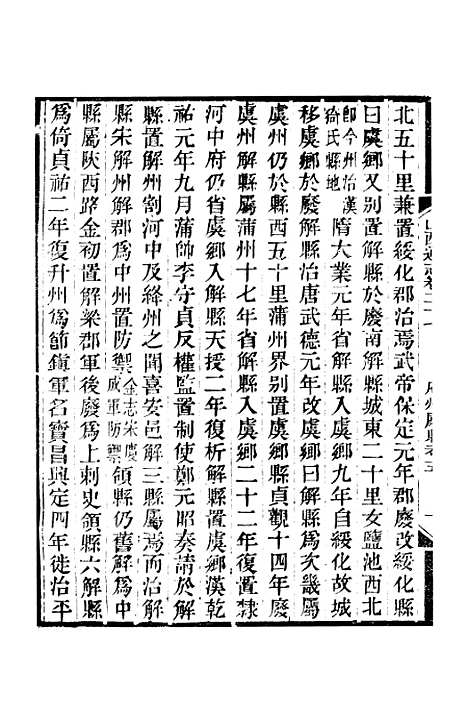 北五十里兼置綏化郡治焉武帝保定元年郡廢改綏化縣
曰虞鄉又别置解縣於廢南解縣城東二十里女鹽池西北
卽今州治漢
猗氏縣地
隋大業元年省解縣入虞鄉九年自綏化故城
移虞鄉於廢解縣治唐武德元年改虞鄉曰解縣爲次畿屬
虞州仍於縣西五十里蒲州界别置虞鄉縣貞觀十四年廢
虞州解縣屬蒲州十七年省解縣入虞鄉二十二年復置隸
河中府仍省虞鄉入解縣天授二年復析解縣置虞鄉漢乾
祐元年九月蒲帥李守貞反權監置制使鄭元昭奏請於解
縣置解州割河中及絳州之聞喜安邑解三縣屬焉而治解
縣宋解州解郡爲中州置防禦
金志宋慶
成軍防禦
領縣仍舊解爲中
縣屬陝西路金初置解梁郡軍後廢爲上刺史領縣六解縣
爲倚貞祐二年復升州爲節鎭軍名寶昌興定四年徙治平
山西通志卷二十
府州廳縣考五
一